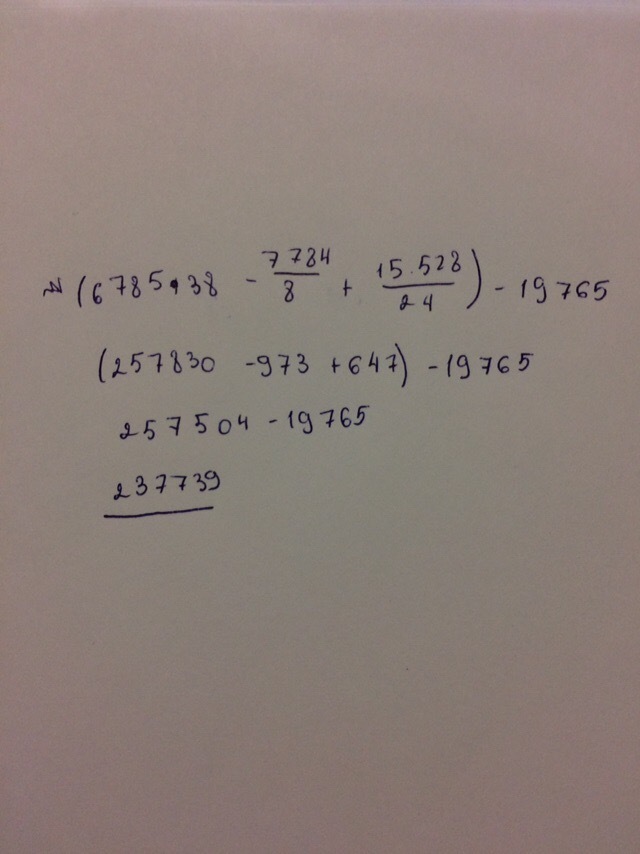 (6785•38 - 7784/8 + 15.528/24) - 19765
(257830 -973 +647) -19765
257504 -19765
237739